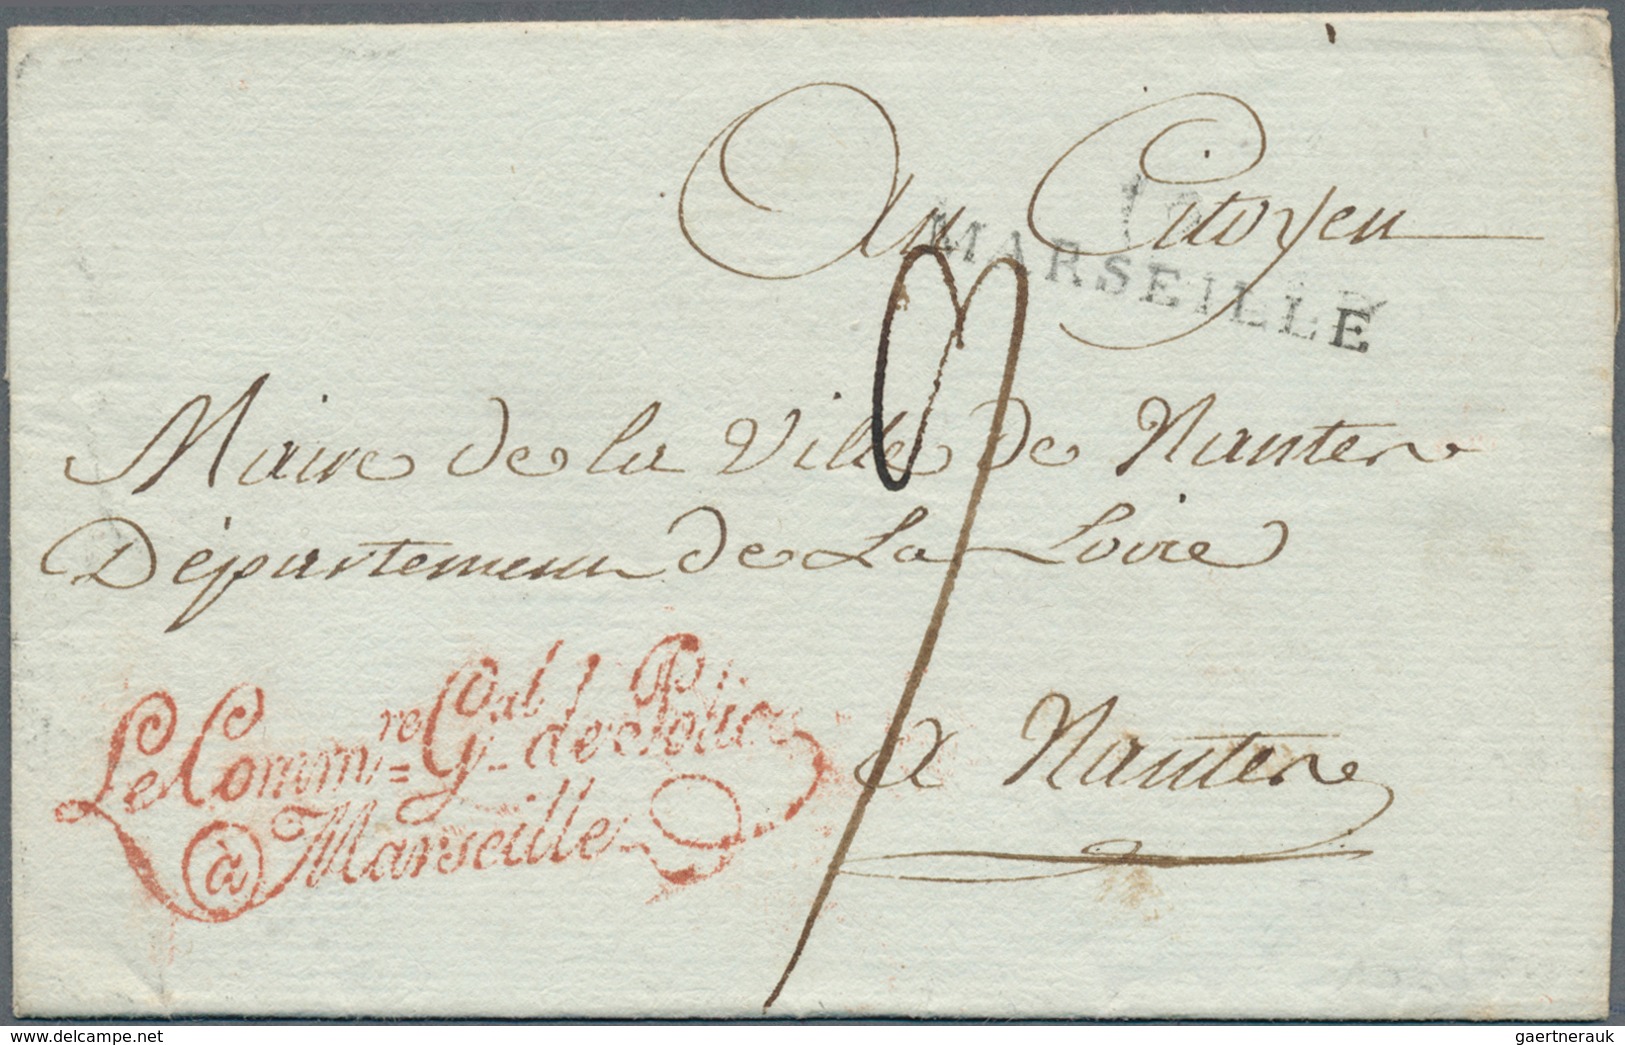 Au Citoyen
MARSEILLE
Maire de la Ville de Nantes
Département de La Loire
Le Comm.re G.al de Police
à Marseille
a Nantes
delcampe.net
gaertnerauk